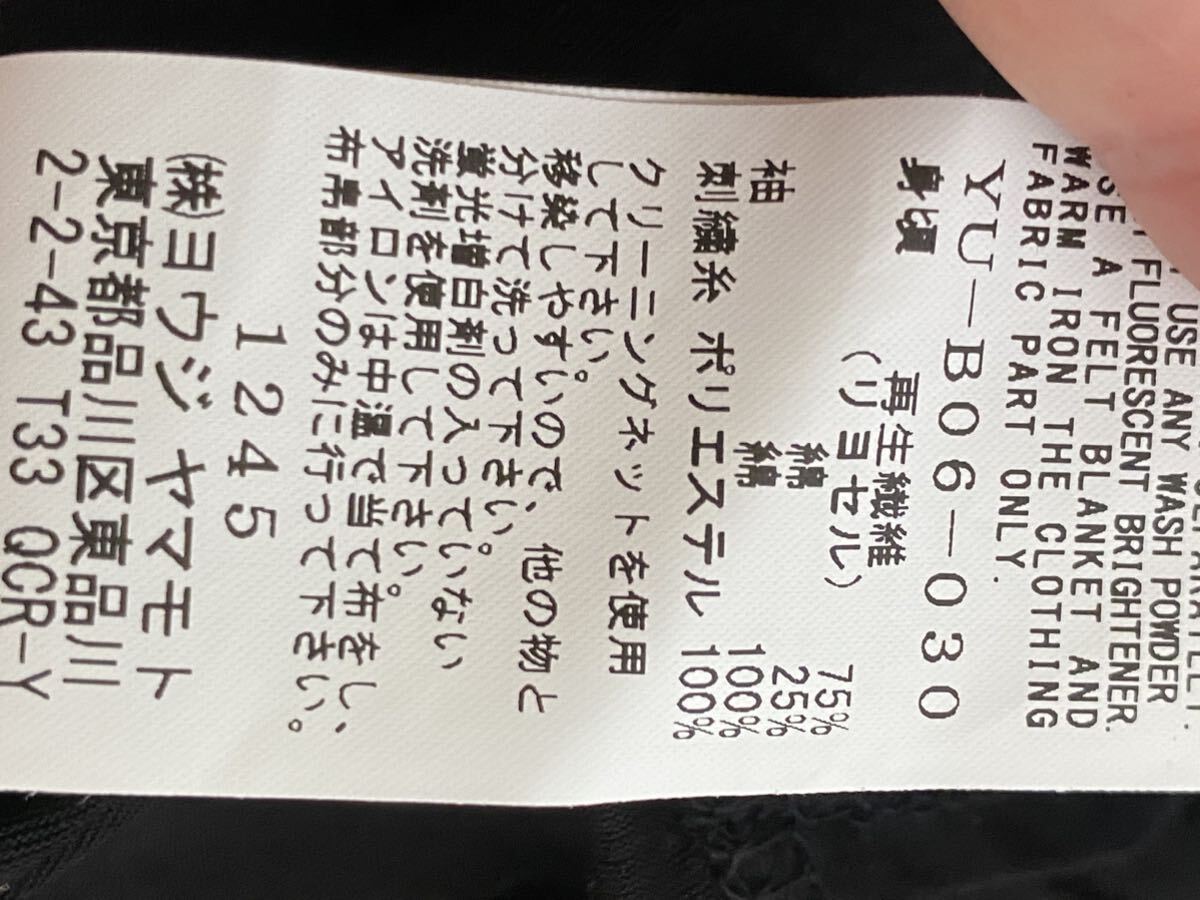 USE ANY WASH POWDER
FLUORESCENT BRIGHTENER.
USE A FELT BLANKET AND
WARM IRON THE CLOTHING
FABRIC PART ONLY.
YU-B06-030
身頃
再生繊維
(リヨセル) 75%
綿 25%
袖 綿 100%
刺繍糸 ポリエステル 100%
クリーニングネットを使用
して下さい。
移染しやすいので、他の物と
分けて洗って下さい。
蛍光増白剤の入っていない
洗剤を使用して下さい。
アイロンは中温で当て布をし、
布帛部分のみに行って下さい。
1245
(株)ヨウジヤマモト
東京都品川区東品川
2-2-43 T33 QCR-Y